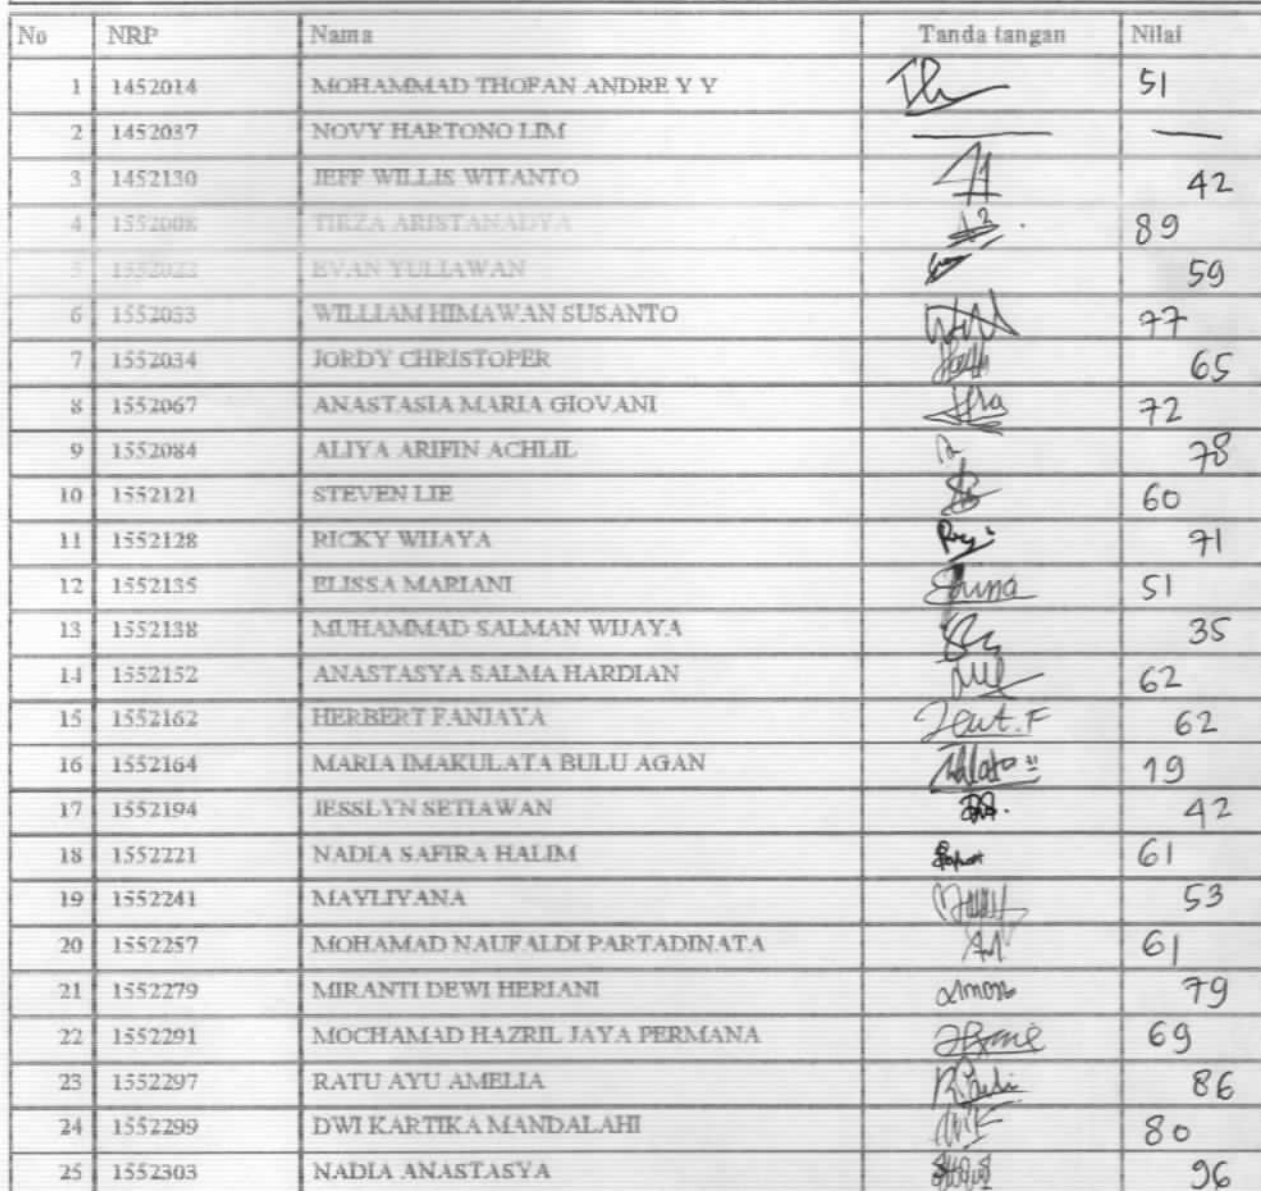 No NRP Nama Tanda tangan Nilai
1 1452014 MOHAMMAD THOFAN ANDRE Y Y 51
2 1452037 NOVY HARTONO LIM —
3 1452130 JEFF WILLIS WITANTO 42
4 1552008 TIRZA ARISTANADYA 89
5 1552022 EVAN YULIAWAN 59
6 1552033 WILLIAM HIMAWAN SUSANTO 77
7 1552034 JORDY CHRISTOPER 65
8 1552067 ANASTASIA MARIA GIOVANI 72
9 1552084 ALIYA ARIFIN ACHLIL 78
10 1552121 STEVEN LIE 60
11 1552128 RICKY WIJAYA 71
12 1552135 ELISSA MARIANI 51
13 1552138 MUHAMMAD SALMAN WIJAYA 35
14 1552152 ANASTASYA SALMA HARDIAN 62
15 1552162 HERBERT FANJAYA 62
16 1552164 MARIA IMAKULATA BULU AGAN 19
17 1552194 JESSLYN SETIAWAN 42
18 1552221 NADIA SAFIRA HALIM 61
19 1552241 MAYLIYANA 53
20 1552257 MOHAMAD NAUFALDI PARTADINATA 61
21 1552279 MIRANTI DEWI HERIANI 79
22 1552291 MOCHAMAD HAZRIL JAYA PERMANA 69
23 1552297 RATU AYU AMELIA 86
24 1552299 DWI KARTIKA MANDALAHI 80
25 1552303 NADIA ANASTASYA 96